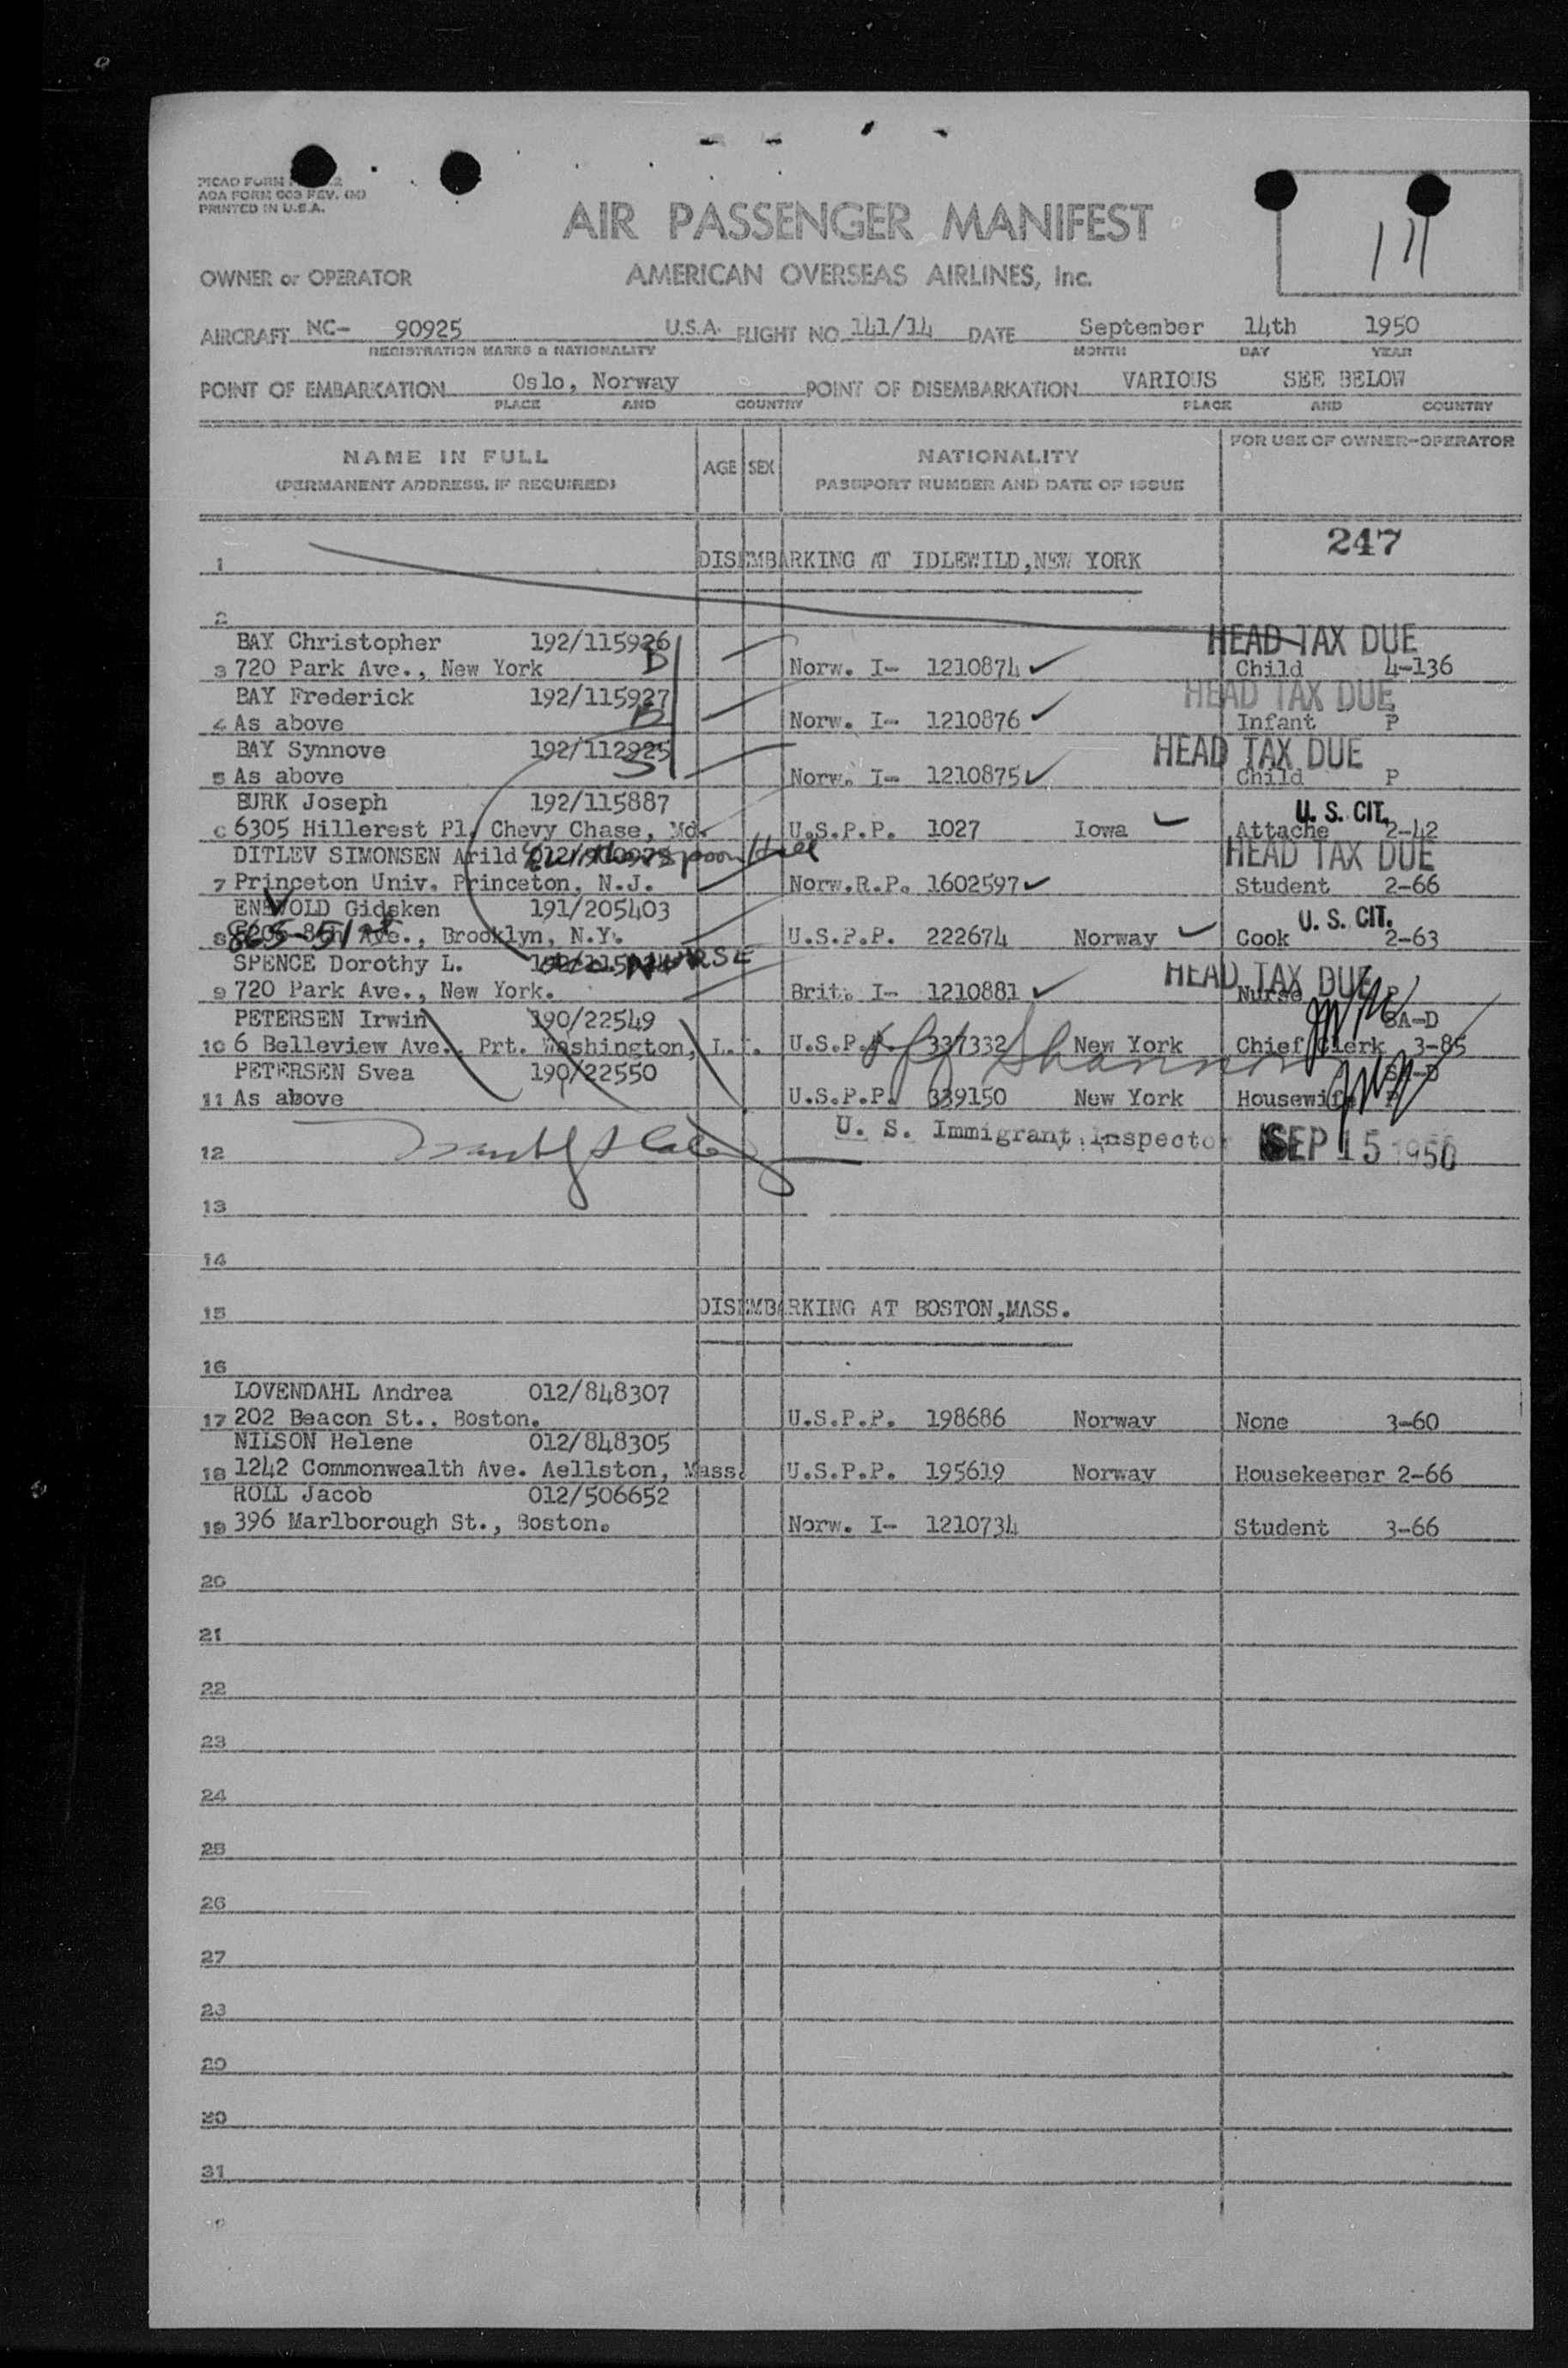 ADA FORM 603 REV. (M)
PRINTED IN U.S.A.
111
AIR PASSENGER MANIFEST
OWNER or OPERATOR AMERICAN OVERSEAS AIRLINES, Inc.
AIRCRAFT NC- 90925 U.S.A. FLIGHT NO. 141/14 DATE September 14th 1950
REGISTRATION MARKS & NATIONALITY MONTH DAY YEAR
POINT OF EMBARKATION Oslo, Norway POINT OF DISEMBARKATION VARIOUS SEE BELOW
PLACE AND COUNTRY PLACE AND COUNTRY
NAME IN FULL AGE SEX NATIONALITY FOR USE OF OWNER-OPERATOR
(PERMANENT ADDRESS, IF REQUIRED) PASSPORT NUMBER AND DATE OF ISSUE
247
1 DISEMBARKING AT IDLEWILD,NEW YORK
2
BAY Christopher 192/115926 HEAD TAX DUE
3 720 Park Ave., New York B Norw. I- 1210874 Child 4-136
BAY Frederick 192/115927 HEAD TAX DUE
4 As above B Norw. I- 1210876 Infant P
BAY Synnove 192/112925 HEAD TAX DUE
5 As above S Norw. I- 1210875 Child P
BURK Joseph 192/115887 U. S. CIT.
6 6305 Hillerest Pl. Chevy Chase, Md. U.S.P.P. 1027 Iowa Attache 2-42
DITLEV SIMONSEN Arild Hall HEAD TAX DUE
7 Princeton Univ. Princeton, N.J. Norw.R.P. 1602597 Student 2-66
ENEVOLD Gidsken 191/205403 U. S. CIT.
8 865-51st Ave., Brooklyn, N.Y. U.S.P.P. 222674 Norway Cook 2-63
SPENCE Dorothy L. NURSE HEAD TAX DUE
9 720 Park Ave., New York. Brit. I- 1210881 Nurse P
PETERSEN Irwin 190/22549 SA-D
10 6 Belleview Ave., Prt. Washington, L.I. U.S.P.P. 337332 New York Chief Clerk 3-85
off Shannon
PETERSEN Svea 190/22550 SA-D
11 As above U.S.P.P. 339150 New York Housewife P
12 U. S. Immigrant Inspector SEP 15 1950
13
14
15 DISEMBARKING AT BOSTON,MASS.
16
LOVENDAHL Andrea 012/848307
17 202 Beacon St., Boston. U.S.P.P. 198686 Norway None 3-60
NILSON Helene 012/848305
18 1242 Commonwealth Ave. Aellston, Mass. U.S.P.P. 195619 Norway Housekeeper 2-66
ROLL Jacob 012/506652
19 396 Marlborough St., Boston. Norw. I- 1210734 Student 3-66
20
21
22
23
24
25
26
27
28
29
30
31